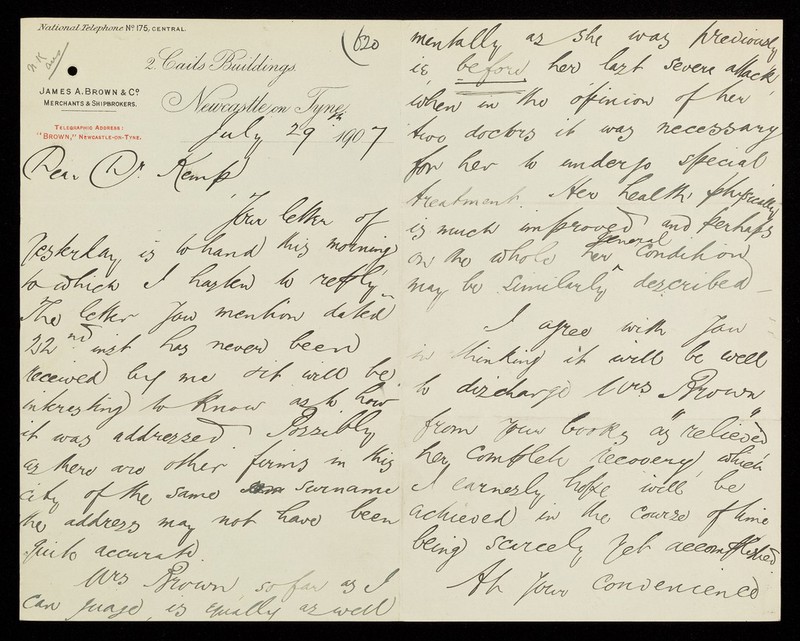 National Telephone Nº 175, CENTRAL.
620
2 Cail's Buildings,
JAMES A. BROWN & Cº
MERCHANTS & SHIPBROKERS.
Newcastle on Tyne,
TELEGRAPHIC ADDRESS:
"BROWN," NEWCASTLE-ON-TYNE.
July 29th 1907
Dear Dr. Kemp
Your letter of
yesterday is to hand this morning
to which I hasten to reply
The letter you mention dated
22nd inst has never been
received by me & it will be
interesting to know as to how
it was addressed. Possibly
as there are other firms in this
city of the same surname
the address may not have been
quite accurate.
Mrs Brown, so far as I
can judge, is equally as well
mentally as she was previously
ie before her last severe attack,
when in the opinion of her
two doctors it was necessary
for her to undergo special
treatment. Her health physically
is much improved and perhaps
on the whole her general condition
may be similarly described —
I agree with you
in thinking it will be well
to discharge Mrs Brown
from your books as "relieved"
her complete recovery, which
I earnestly hope will be
achieved in the course of time
being scarcely yet accomplished.
At your convenience